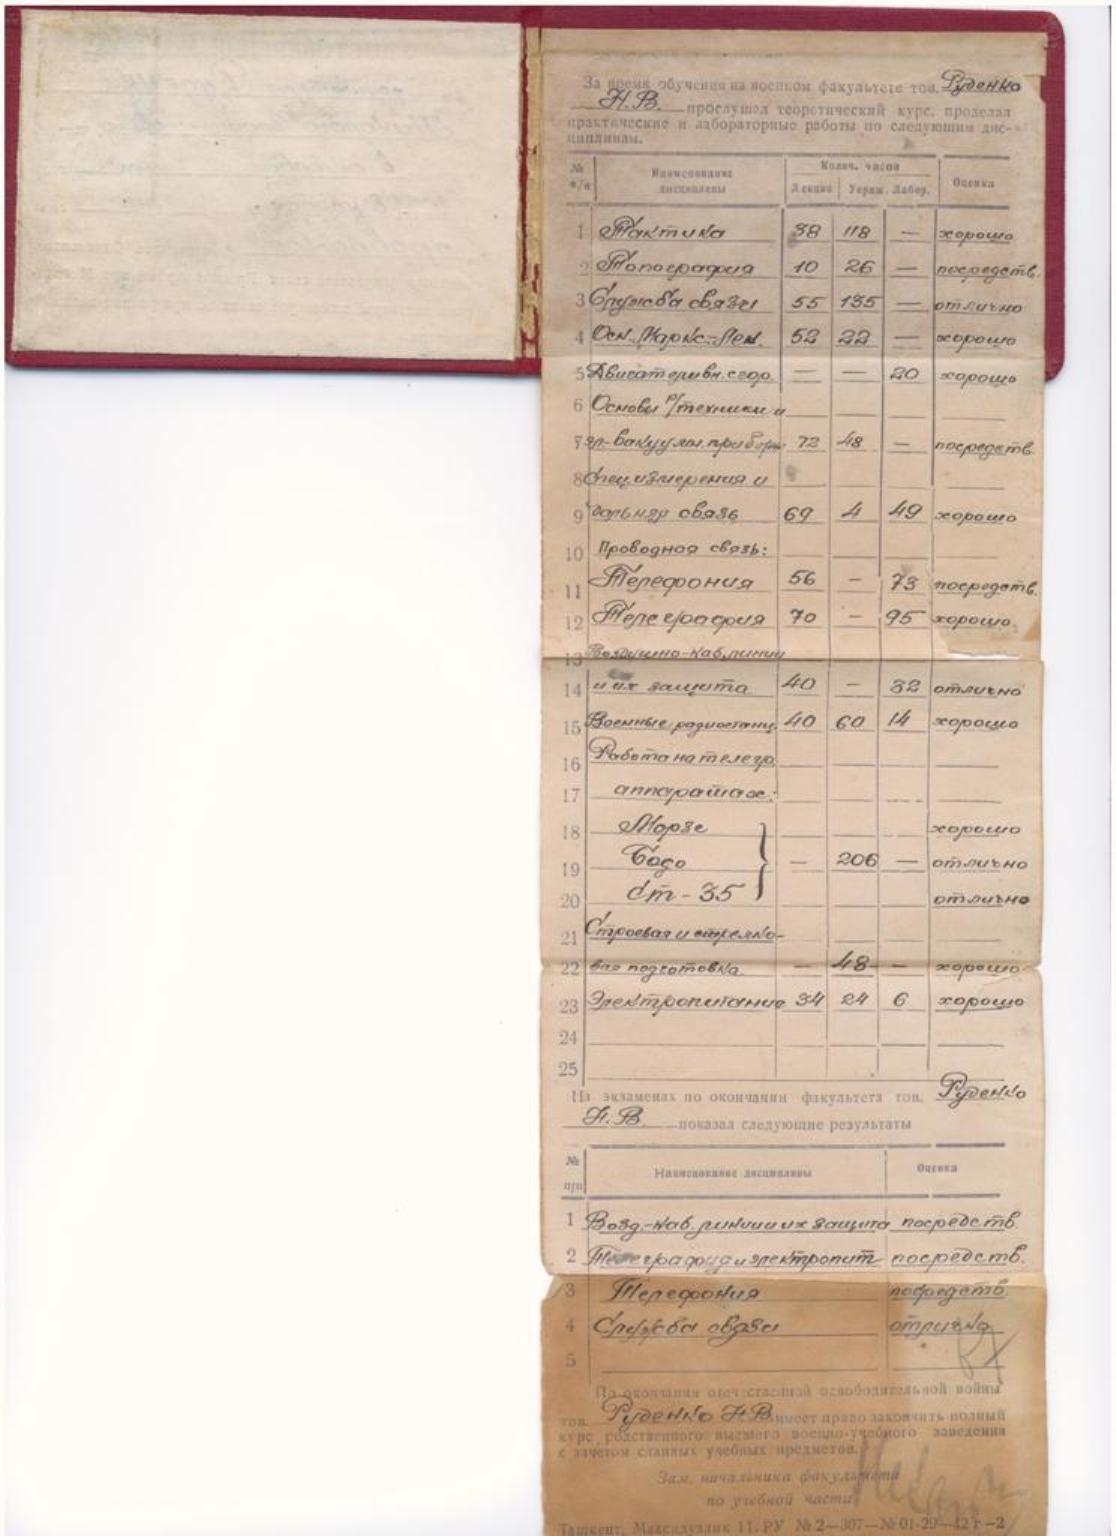 За время обучения на военном факультете тов. Руденко
Н.В. прослушал теоретический курс, проделал
практические и лабораторные работы по следующим дис-
циплинам.
№ п/п Наименование дисциплины Колич. часов Лекции Упраж. Лабор. Оценка
1 Тактика 38 118 — хорошо
2 Топография 10 26 — посредств.
3 Служба связи 55 135 — отлично
4 Осн. Маркс.-Лен. 52 22 — хорошо
5 Двигатели вн. сгор. — — 20 хорошо
6 Основы р/техники и
7 эл-вакуумн. приборы 72 48 — посредств.
8 Спец. измерения и
9 дальняя связь 69 4 49 хорошо
10 Проводная связь:
11 Телефония 56 - 73 посредств.
12 Телеграфия 70 - 95 хорошо
13 Воздушно-каб. линии
14 и их защита 40 - 32 отлично
15 Военные радиостанц. 40 60 14 хорошо
16 Работа на телегр.
17 аппаратах:
18 Морзе хорошо
19 Бодо } — 206 — отлично
20 Ст-35 отлично
21 Строевая и стрелко-
22 вая подготовка. — 48 — хорошо
23 Электропитание 34 24 6 хорошо
24
25
На экзаменах по окончании факультета тов. Руденко
Н.В. показал следующие результаты
№ п/п Наименование дисциплины Оценка
1 Возд.-каб. линии и их защита посредств.
2 Телеграфия и электропит. посредств.
3 Телефония посредств.
4 Служба связи отлично
5
По окончании отечественной освободительной войны
тов. Руденко Н.В. имеет право закончить полный
курс родственного высшего военно-учебного заведения
с зачетом сданных учебных предметов.
Зам. начальника факультета
по учебной части
Ташкент, 11. РУ № 2—307—№ 01-29—42 г.—2